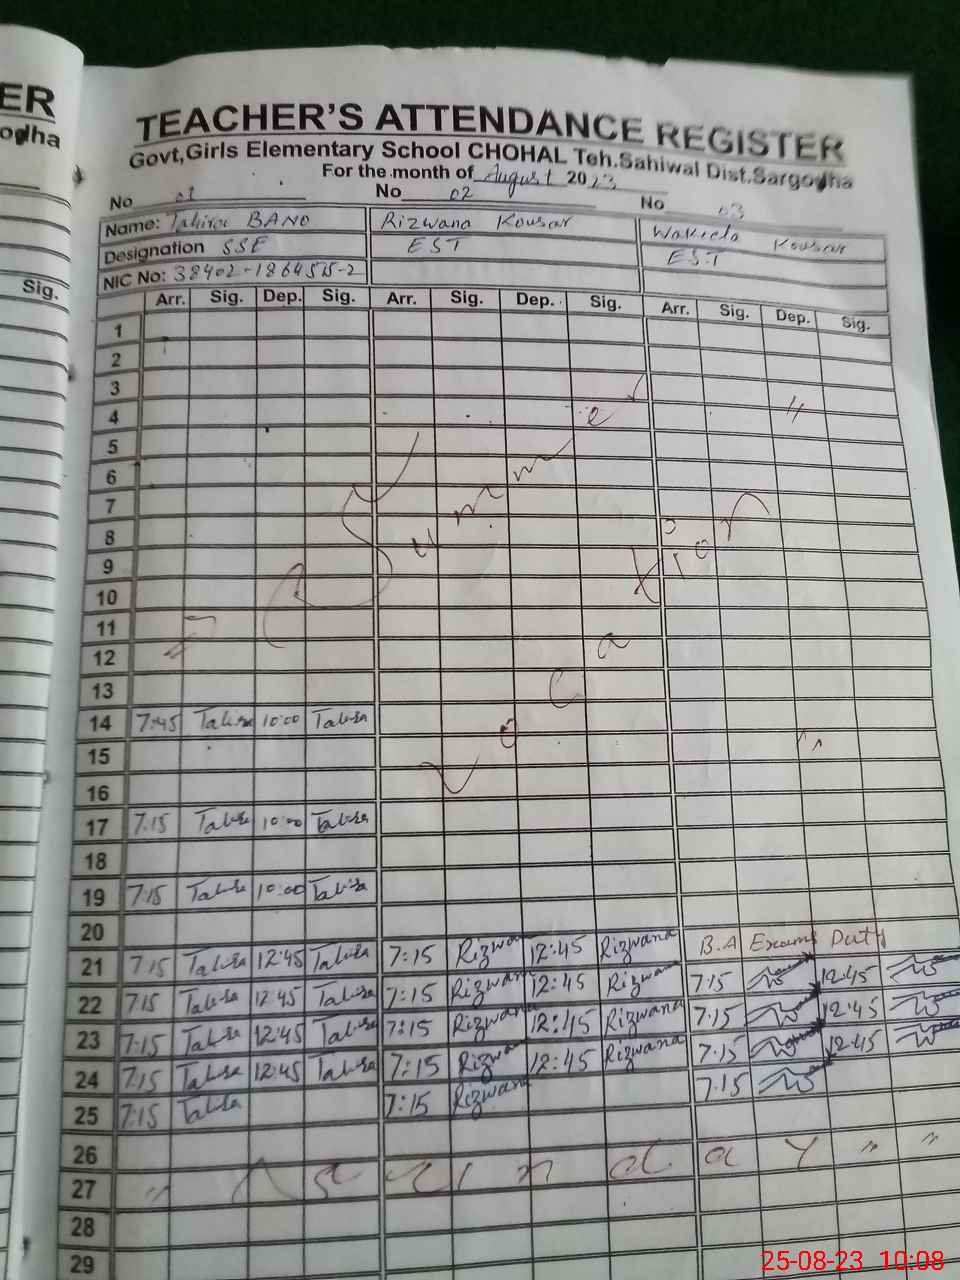 ER
TEACHER'S ATTENDANCE REGISTER
Govt,Girls Elementary School CHOHAL Teh.Sahiwal Dist.Sargodha
For the month of August 2023
No 01 No 02 No 03
Name: Tahira BANO Rizwana Kousar Kousar
Designation SSE EST EST
NIC No:
Sig. Arr. Sig. Dep. Sig. Arr. Sig. Dep. Sig. Arr. Sig. Dep. Sig.
1
2
3
4
5
6
7
8
9
10
11
12
13
Summer
Vacation
14 7:45 Tahira 10:00 Tahira
15
16
17 7:15 Tahira 10:00 Tahira
18
19 7:15 Tahira 10:00 Tahira
20
21 7:15 Tahira 12:45 Tahira 7:15 Rizwana 12:45 Rizwana B.A Exams Duty
22 7:15 Tahira 12:45 Tahira 7:15 Rizwana 12:45 Rizwana 7:15 12:45
23 7:15 Tahira 12:45 Tahira 7:15 Rizwana 12:45 Rizwana 7:15 12:45
24 7:15 Tahira 12:45 Tahira 7:15 Rizwana 12:45 Rizwana 7:15 12:45
25 7:15 Tahira 7:15 Rizwana 7:15
26
27 " Sunday " "
28
29
25-08-23 10:08